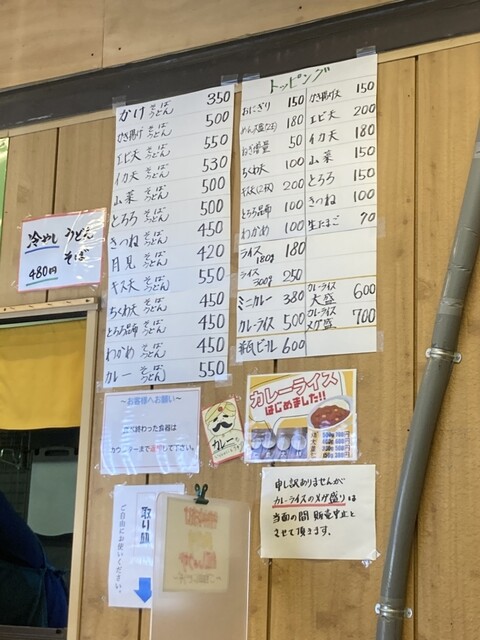 かけ そば うどん 350
かき揚げ そば うどん 500
エビ天 そば うどん 550
イカ天 そば うどん 530
山菜 そば うどん 500
とろろ そば うどん 500
きつね そば うどん 450
月見 そば うどん 420
キス天 そば うどん 550
ちくわ天 そば うどん 450
とろろ昆布 そば うどん 450
わかめ そば うどん 450
カレー そば うどん 550
トッピング
おにぎり 150
めん大盛(2玉) 180
ねぎ増量 50
ちくわ天 100
キス天(2枚) 200
とろろ昆布 100
わかめ 100
ライス 180g 180
ライス 300g 250
ミニカレー 380
カレーライス 500
瓶ビール 600
かき揚げ天 150
エビ天 200
イカ天 180
山菜 150
とろろ 150
きつね 100
生たまご 70
カレーライス 大盛 600
カレーライス メガ盛 700
冷やし うどん そば
480円
~お客様へお願い~
食べ終わった食器は
カウンターまで返却して下さい。
カレー
カレーライス
はじめました!!
申し訳ありませんが
カレーライスのメガ盛りは
当面の間 販売中止と
させて頂きます。
ご自由にお使いください。
取り皿